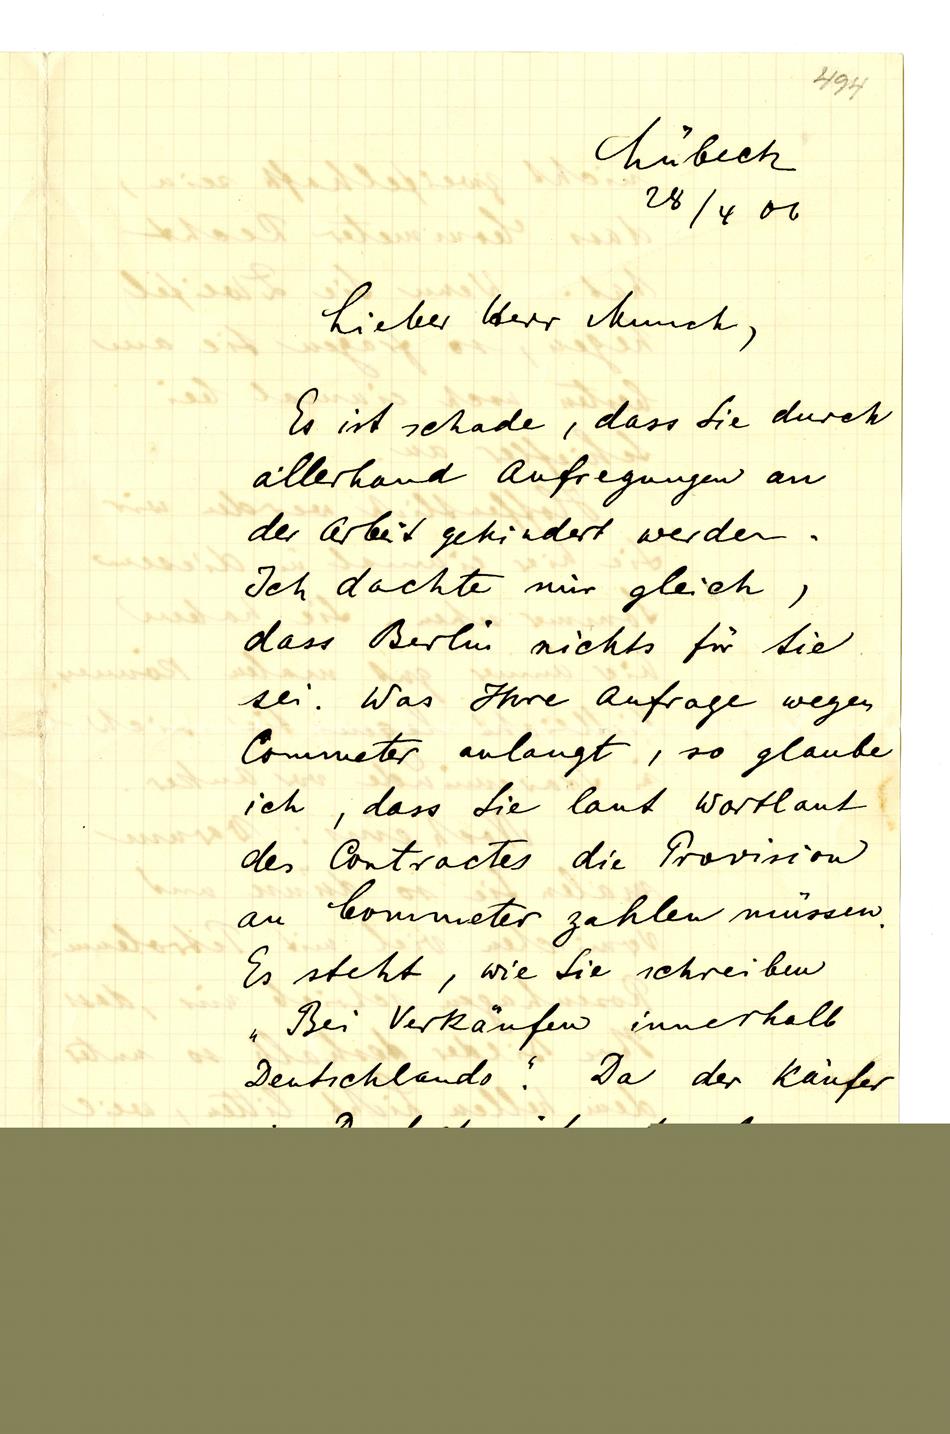 494
Lübeck
28/4 06
Lieber Herr Munch,
Es ist schade, dass Sie durch
allerhand Aufregungen an
der Arbeit gehindert werden.
Ich dachte mir gleich,
dass Berlin nichts für Sie
sei. Was Ihre Anfrage wegen
Commeter anlangt, so glaube
ich, dass Sie laut Wortlaut
des Contractes die Provision
an Commeter zahlen müssen.
Es steht, wie Sie schreiben
„Bei Verkäufen innerhalb
Deutschlands“. Da der Käufer